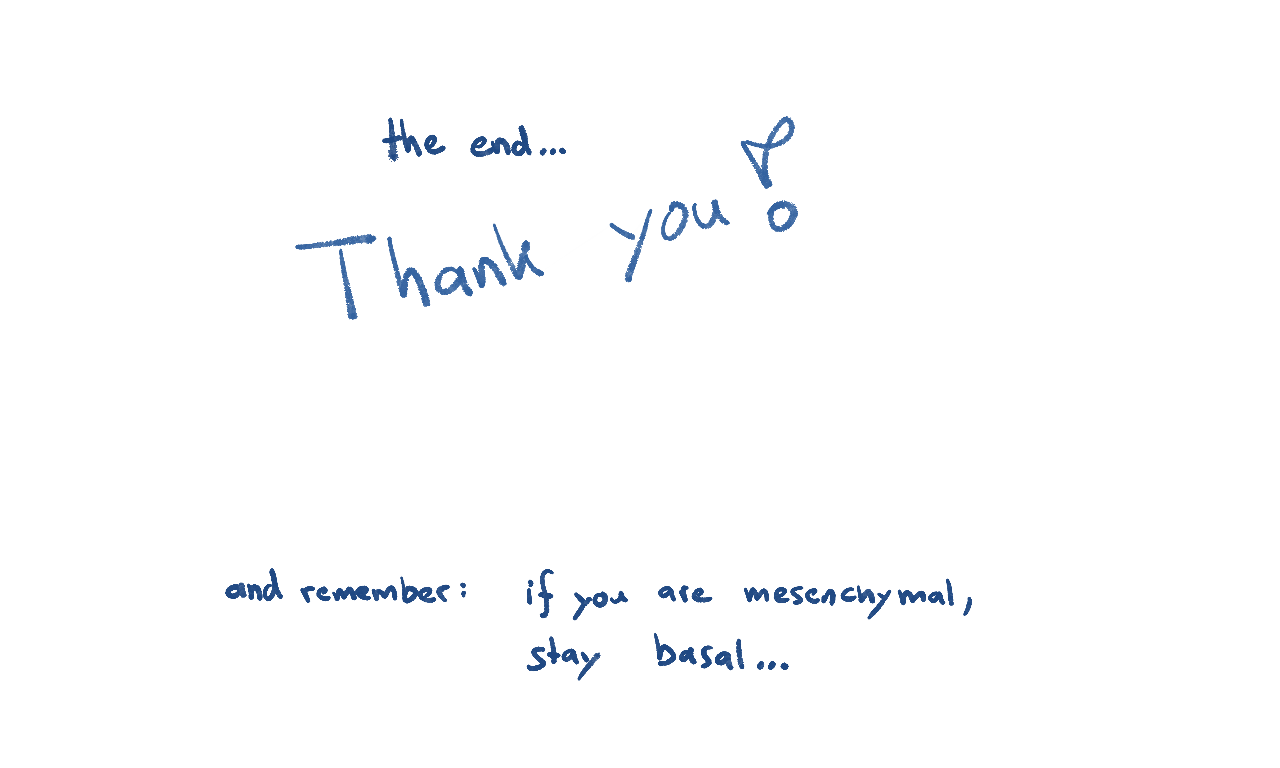 the end...
Thank you!
and remember: if you are mesenchymal,
stay basal...